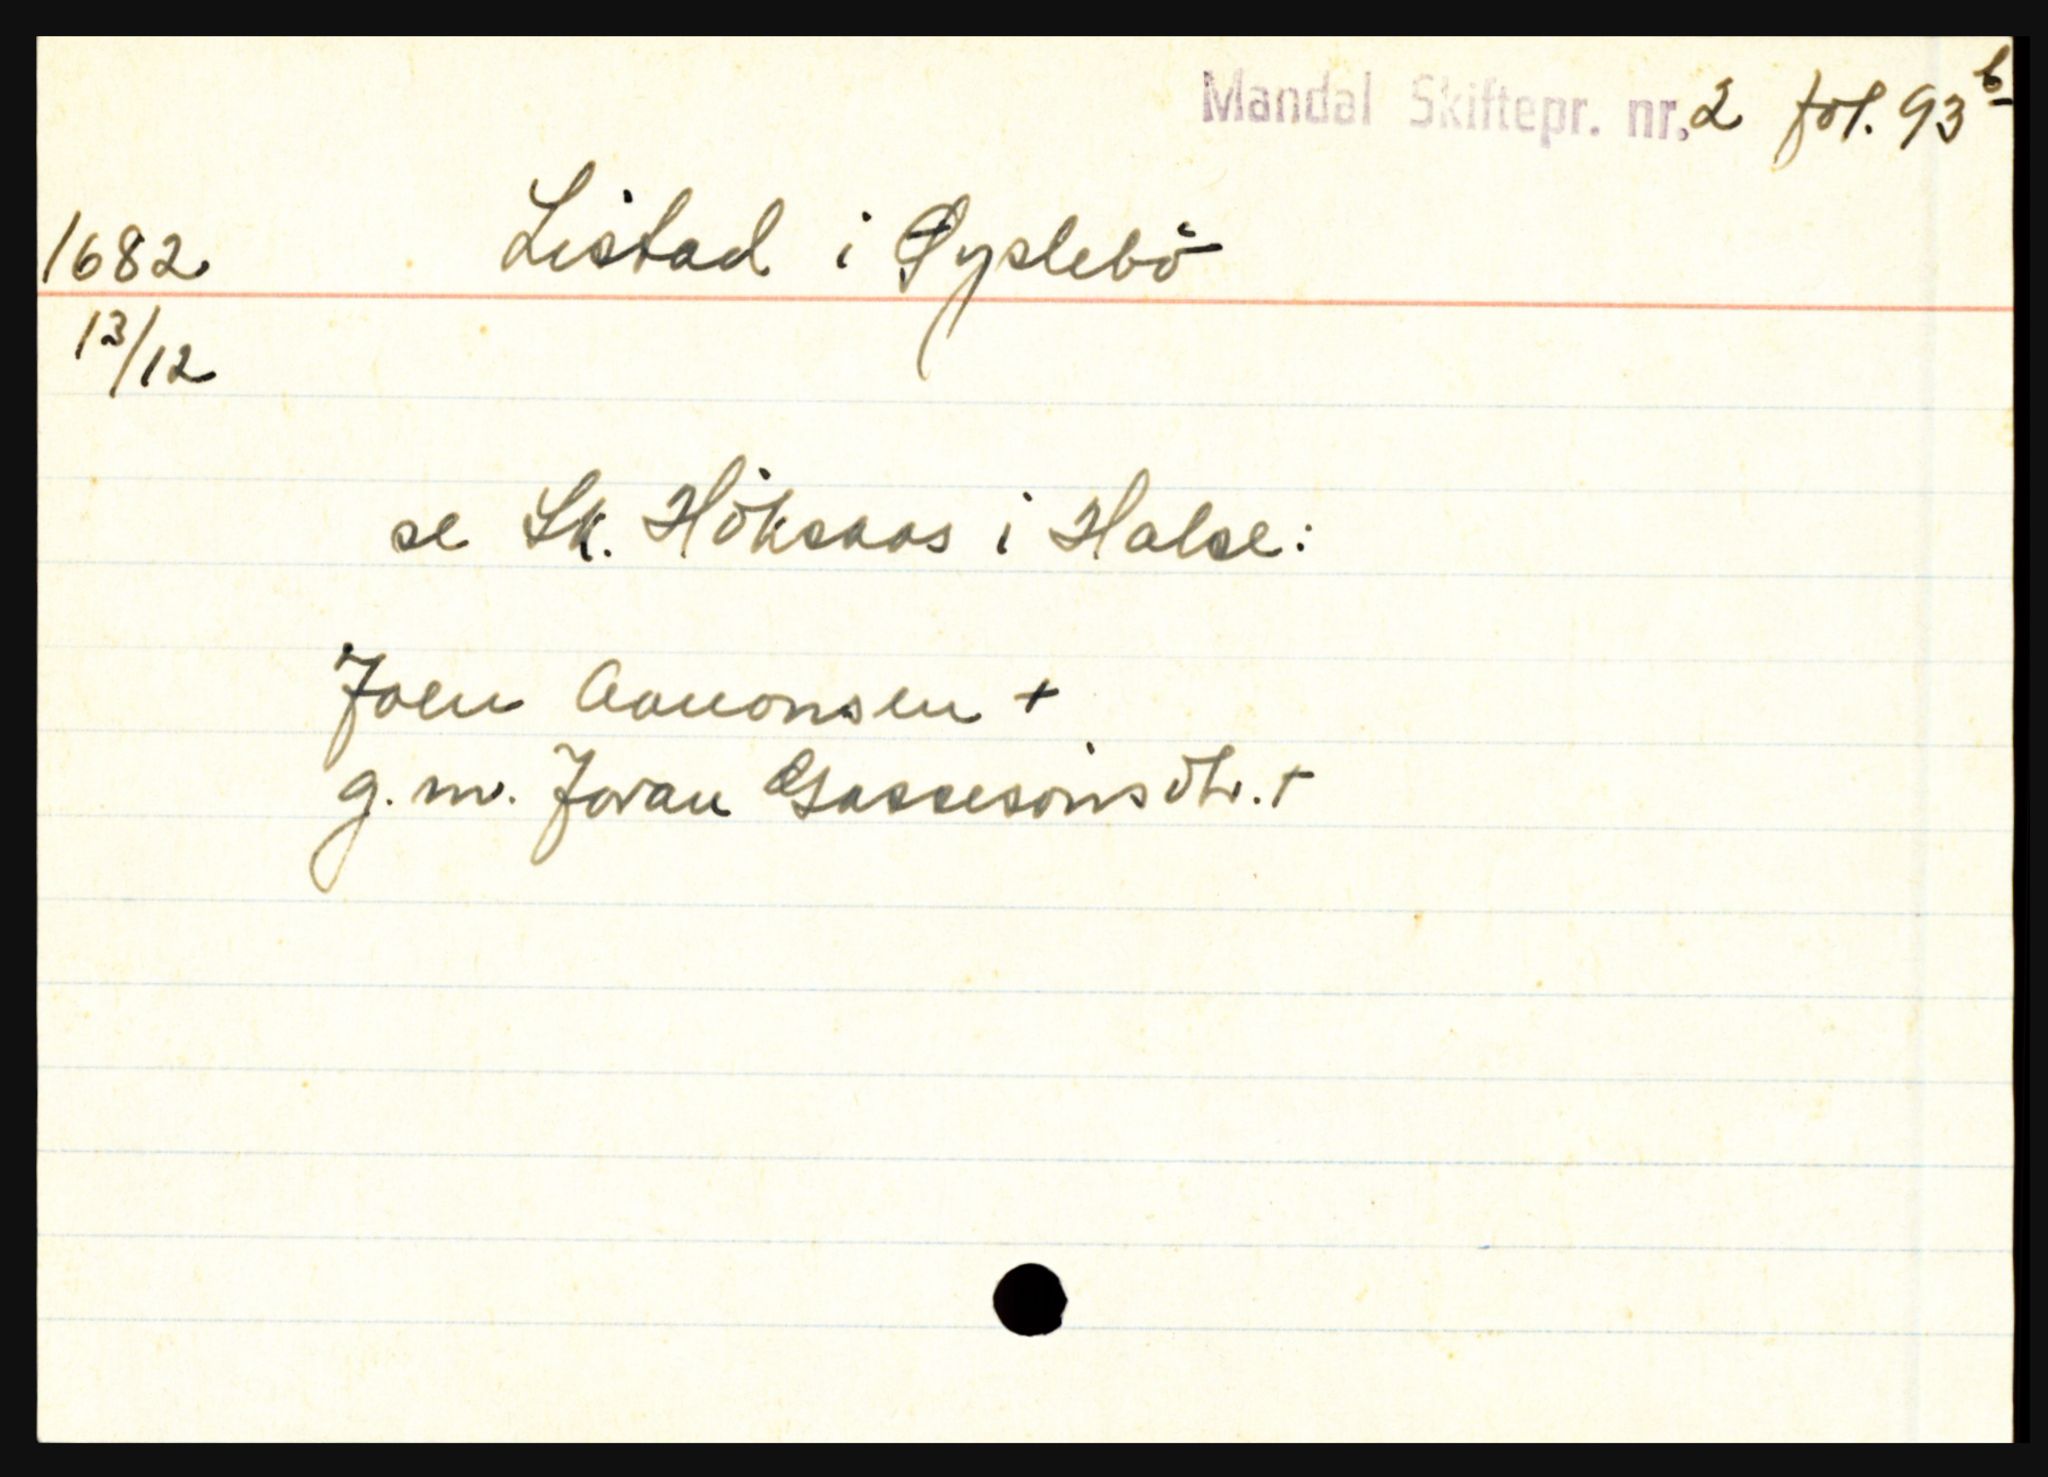 Mandal Skiftepr. nr. 2 fol. 93b
1682 Listad i Øyslebö
13/12
se Sk. Höksaas i Halse:
Joen Aanonsen +
g. m. Joran Gassesönsdtr. +